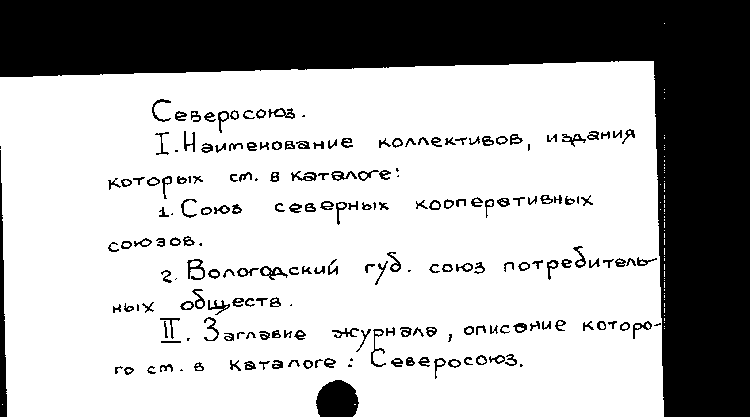 Северосоюз.
I. Наименование коллективов, издания
которых см. в каталоге:
1. Союз северных кооперативных
союзов.
2. Вологодский губ. союз потребитель-
ных обществ.
II. Заглавие журнала, описание которо-
го см. в каталоге: Северосоюз.